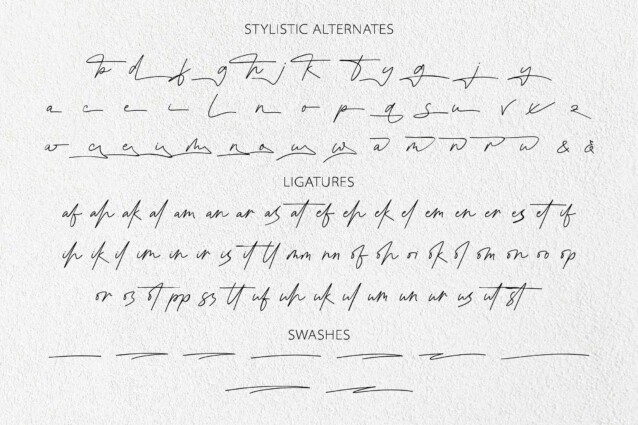 STYLISTIC ALTERNATES
b d f g h j k t y g j y
a c e i L n o p q s u v x z
w a e u m n a u w a m n r u & &
LIGATURES
af ah ak al am an ar as at ef eh ek el em en er es et if
ih ik il im in ir is it ll mm nn of oh oi ok ol om on oo op
or os ot pp ss tt uf uh uk ul um un ur us ut st
SWASHES